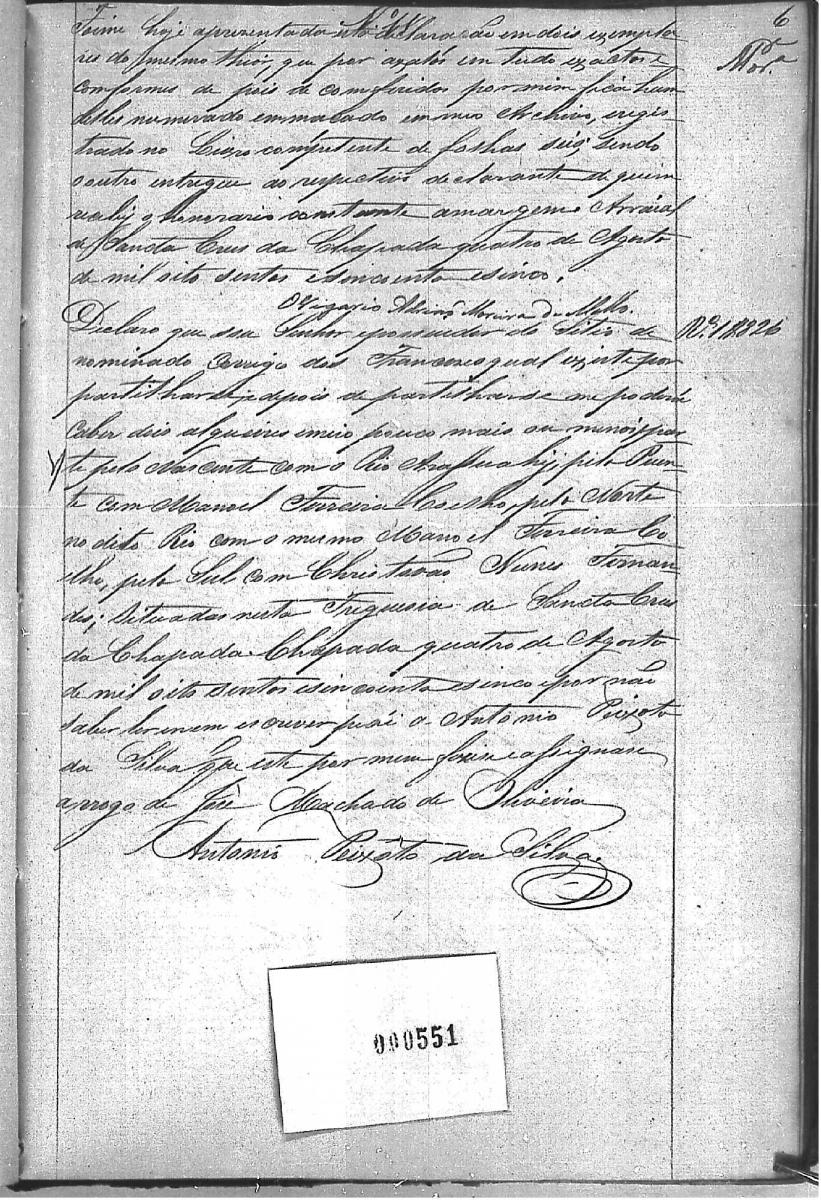 6
Mor.ª
Foime hoje apresentada esta declaração em dois exempla
res do mesmo theor, que por axalos em tudo exactos e
comformes de pois de comferidos por mim fica hum
delles numerado emmaçado em meo Archivo, e regis
trado no Livro competente de folhas seis; sendo
o outro entregue ao respectivo declarante de quem
recebi o honorario constante a margem. Arraial
de Sancta Crus da Chapada quatro de Agosto
de mil oito sentos e sincoenta e sinco.
O Vigario Moreira de Mello.
Declaro que sou Senhor e possuidor do Sitio de
N.º 18826
nominado Corrigo dos Francos o qual existe por
partilharse, e depois de partilharse me poderá
caber dois alqueires e meio pouco mais ou menos; par
te, pelo Nascente com o Rio Arassuahy, pelo Puen
te com Manoel Ferreira Coelho, pelo Norte
no dito Rio com o mesmo Manoel Ferreira Co
elho, pelo Sul com Christovão Nunes Fernan
des; situadas nesta Freguesia de Sancta Crus
da Chapada. Chapada quatro de Agosto
de mil oito sentos e sincoenta e sinco e por não
saber ler e nem escrever pedi a Antonio Peixoto
da Silva que este por mim fizese e assignase
a rrogo de José Machado de Oliveira
Antonio Peixoto da Silva.
000551